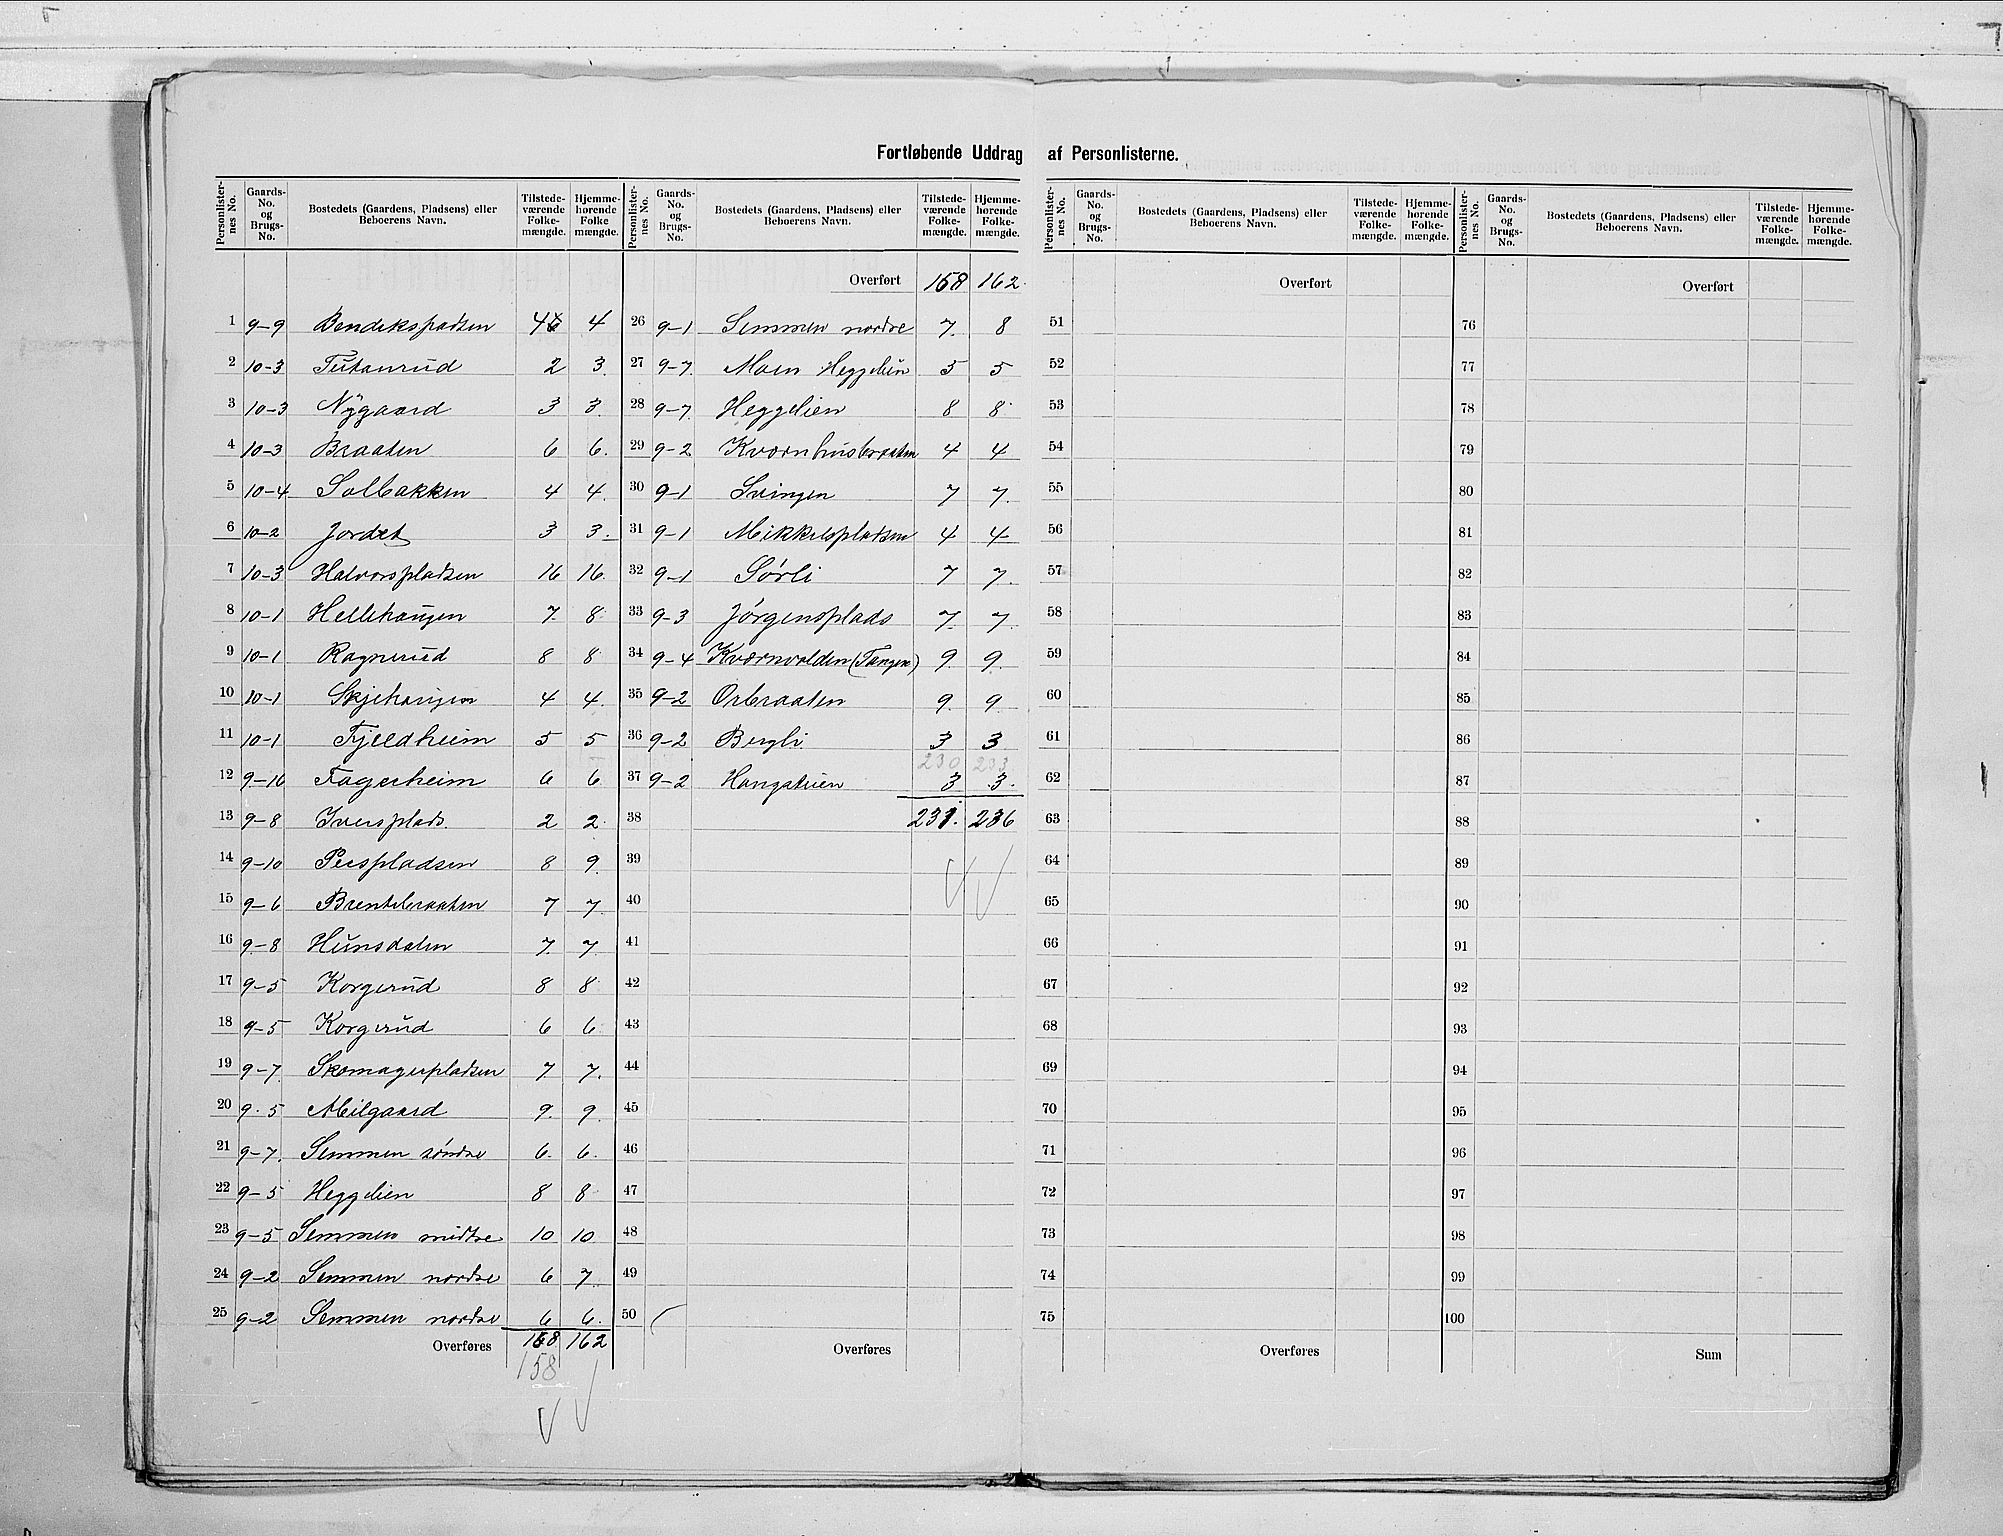 Fortløbende Uddrag af Personlisterne.
Personlister-nes No. | Gaards-No. og Brugs-No. | Bostedets (Gaardens, Pladsens) eller Beboerens Navn. | Tilstede-værende Folke-mængde. | Hjemme-hørende Folke mængde.
1 9-9 Bendikspladsen 4 4
2 10-3 Tutanrud 2 3
3 10-3 Nygaard 3 3
4 10-3 Braaten 6 6
5 10-4 Solbakken 4 4
6 10-2 Jordet 3 3
7 10-3 Halvorspladsen 16 16
8 10-1 Hellehaugen 7 8
9 10-1 Ragnerud 8 8
10 10-1 Skjehaugen 4 4
11 10-1 Fjeldheim 5 5
12 9-16 Fagerheim 6 6
13 9-8 Iversplads 2 2
14 9-10 Perspladsen 8 9
15 9-6 Brentebraaten 7 7
16 9-8 Hunsdalen 7 7
17 9-5 Korgerud 8 8
18 9-5 Korgerud 6 6
19 9-7 Skomagerpladsen 7 7
20 9-5 Milgaard 9 9
21 9-7 Semmen søndre 6 6
22 9-5 Heggelien 8 8
23 9-5 Semmen midtre 10 10
24 9-2 Semmen nordre 6 7
25 9-2 Semmen nordre 6 6
Overføres 158 162
158
Personlister-nes No. | Gaards-No. og Brugs-No. | Bostedets (Gaardens, Pladsens) eller Beboerens Navn. | Tilstede-værende Folke-mængde. | Hjemme-hørende Folke-mængde.
Overført 158 162
26 9-1 Semmen nordre 7 8
27 9-7 Moen Heggelien 5 5
28 9-7 Heggelien 8 8
29 9-2 Kværnhusbraaten 4 4
30 9-1 Svingen 7 7
31 9-1 Mikkelspladsen 4 4
32 9-1 Sørli 7 7
33 9-3 Jørgensplads 7 7
34 9-4 Kværnvolden (Tangen) 9 9
35 9-2 Orbraaten 9 9
36 9-2 Bergli 3 3
230 233
37 9-2 Haugstuen 3 3
38 231 236
39
40
41
42
43
44
45
46
47
48
49
50
Overføres
Personlister-nes No. | Gaards-No. og Brugs-No. | Bostedets (Gaardens, Pladsens) eller Beboerens Navn. | Tilstede-værende Folke-mængde. | Hjemme-hørende Folke-mængde.
Overført
51
52
53
54
55
56
57
58
59
60
61
62
63
64
65
66
67
68
69
70
71
72
73
74
75
Overføres
Personlister-nes No. | Gaards-No. og Brugs-No. | Bostedets (Gaardens, Pladsens) eller Beboerens Navn. | Tilstede-værende Folke-mængde. | Hjemme-hørende Folke-mængde.
Overført
76
77
78
79
80
81
82
83
84
85
86
87
88
89
90
91
92
93
94
95
96
97
98
99
100
Sum